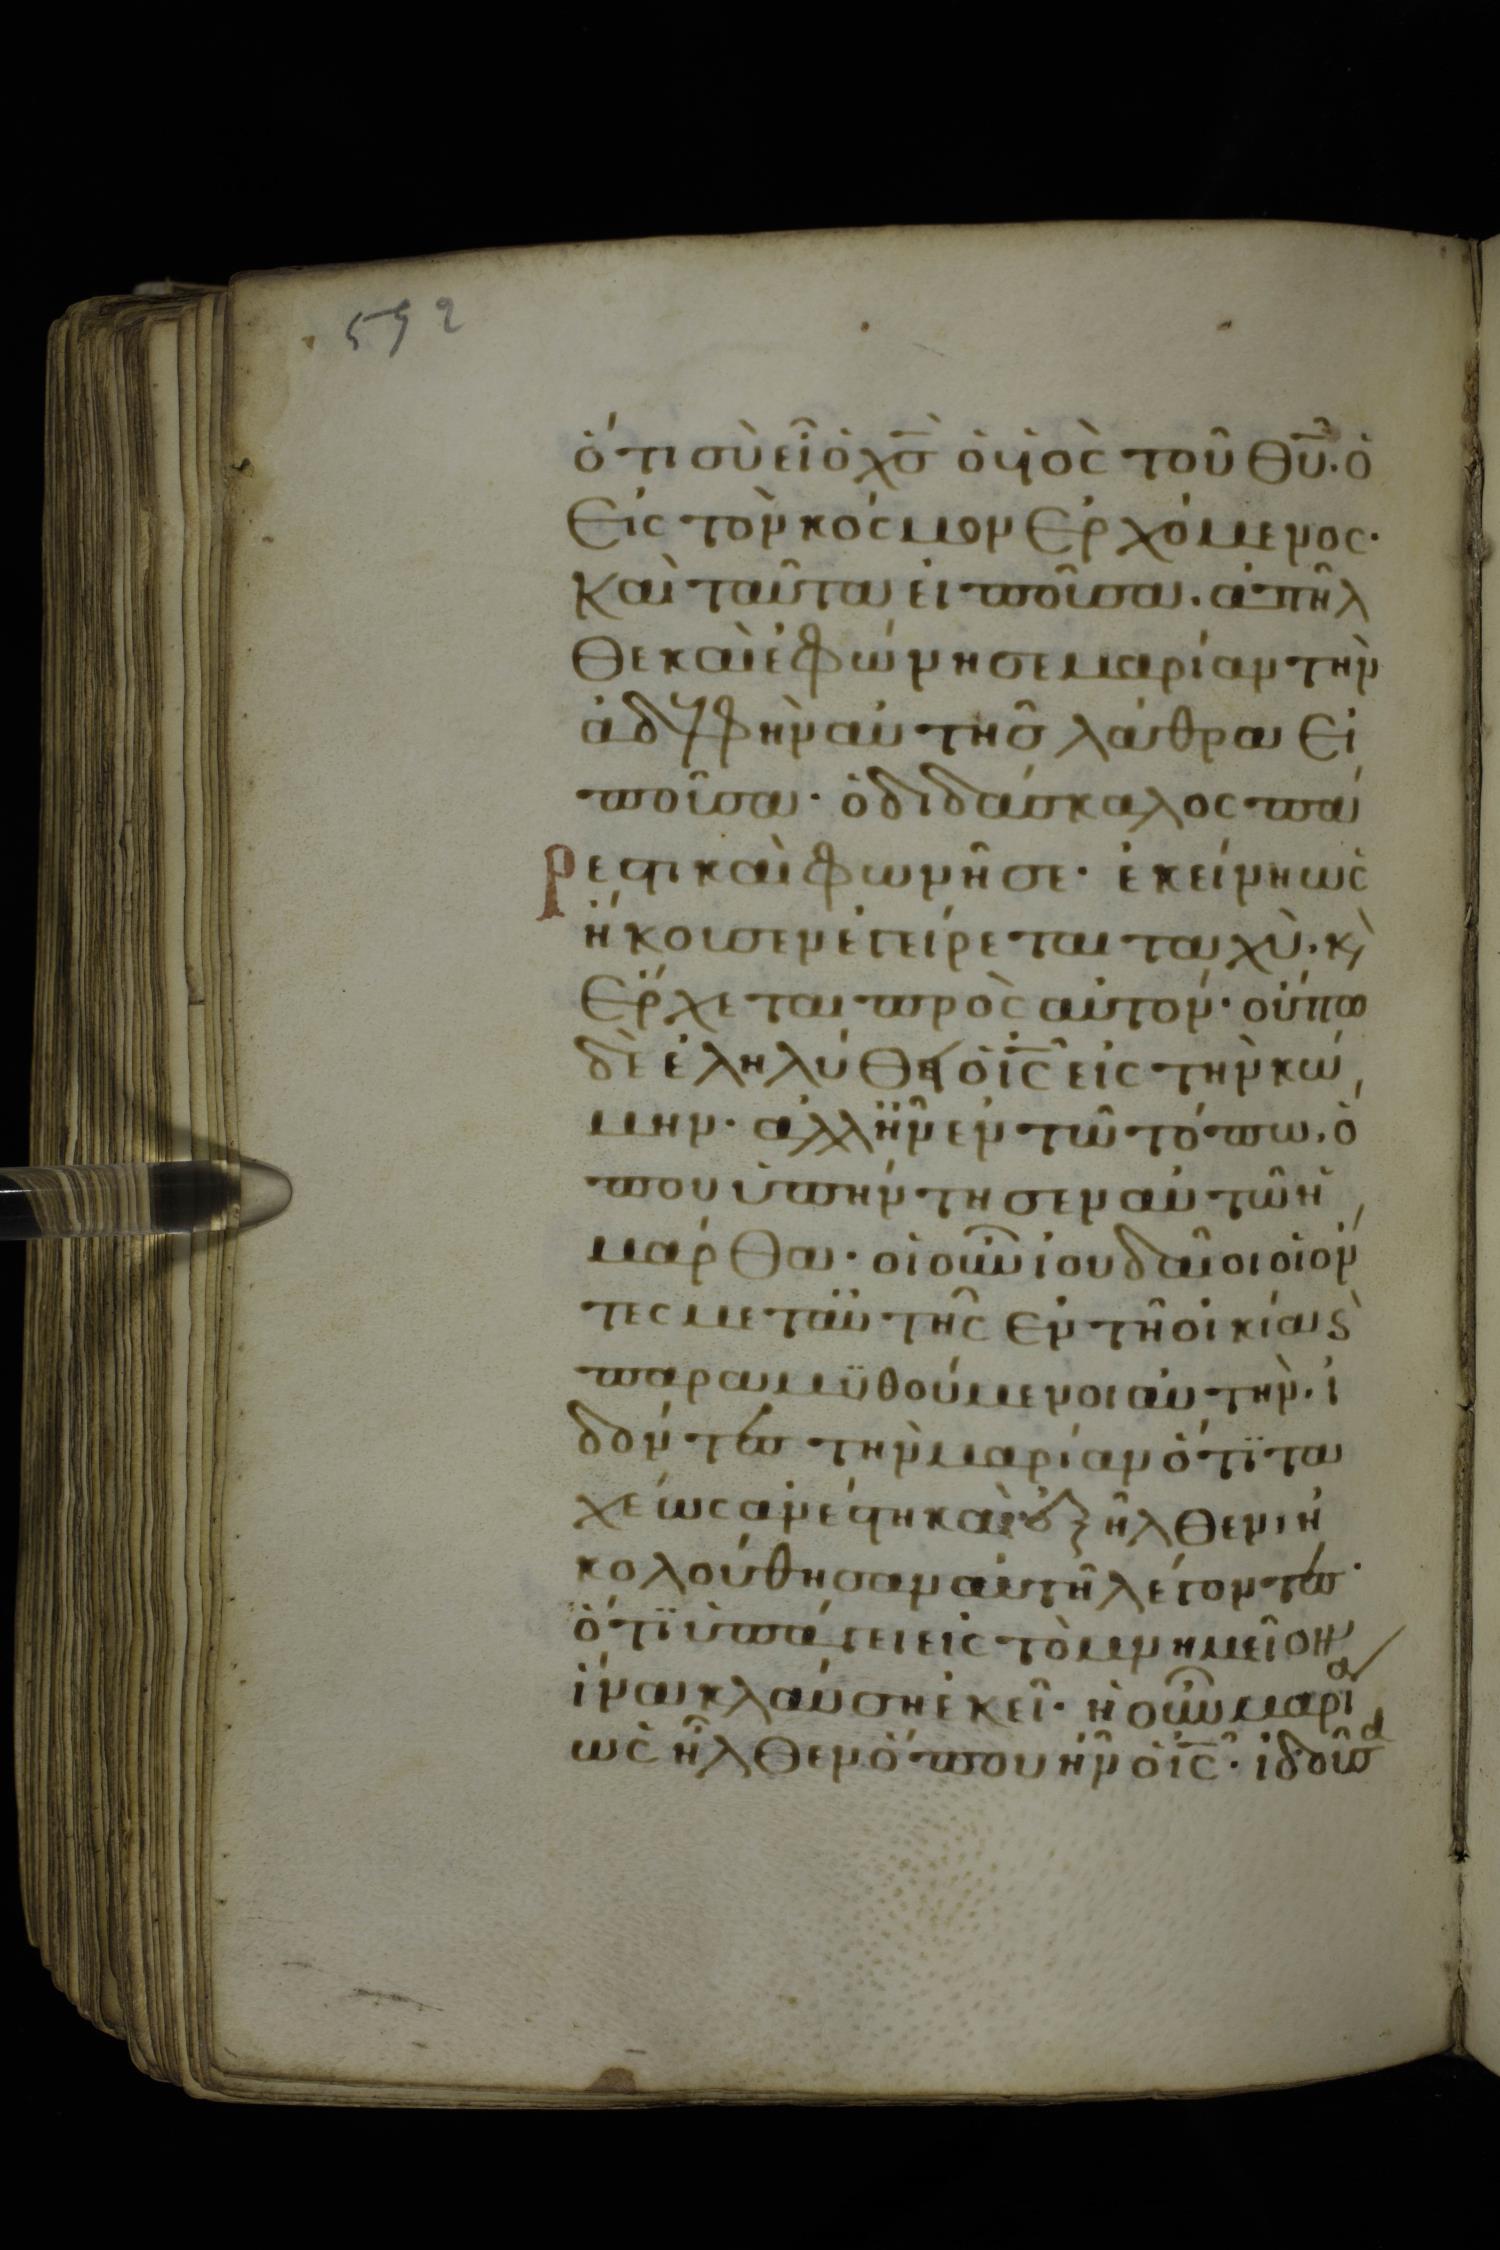 592
ὅτι σὺ εἶ ὁ χς ὁ υἱὸς τοῦ θυ· ὁ
εἰς τὸν κόσμον ἐρχόμενος·
καὶ ταῦτα εἰποῦσα. ἀπῆλ
θε καὶ ἐφώνησε μαρίαν τὴν
ἀδελφὴν αὐτῆς λάθρα εἰ
ποῦσα· ὁ διδάσκαλος πά
ρεστι καὶ φωνῆσε· ἐκείνη ὡς
ἤκουσεν ἐγείρεται ταχὺ. κ
ἔρχεται πρὸς αὐτόν· οὔπω
δὲ ἐληλύθει ὁ ις εἰς τὴν κώ
μην· ἀλλ ἦν ἐν τῶ τόπω. ὅ
που ὑπήντησεν αὐτῶ ἡ
μάρθα· οἱ οὖν ἰουδαῖοι οἱ ὄν
τες μετ αὐτῆς ἐν τῆ οἰκία ϛ
παραμυθούμενοι αὐτὴν. ἰ
δόντες τὴν μαρίαν ὅτι τα
χέως ἀνέστη καὶ ἐξῆλθεν. ἠ
κολούθησαν αὐτῆ λέγοντες·
ὅτι ὑπάγει εἰς τὸ μνημεῖον
ἵνα κλαύση ἐκεῖ· ἡ οὖν μαρία
ὡς ἦλθεν ὅπου ἦν ὁ ις· ἰδοῦσα